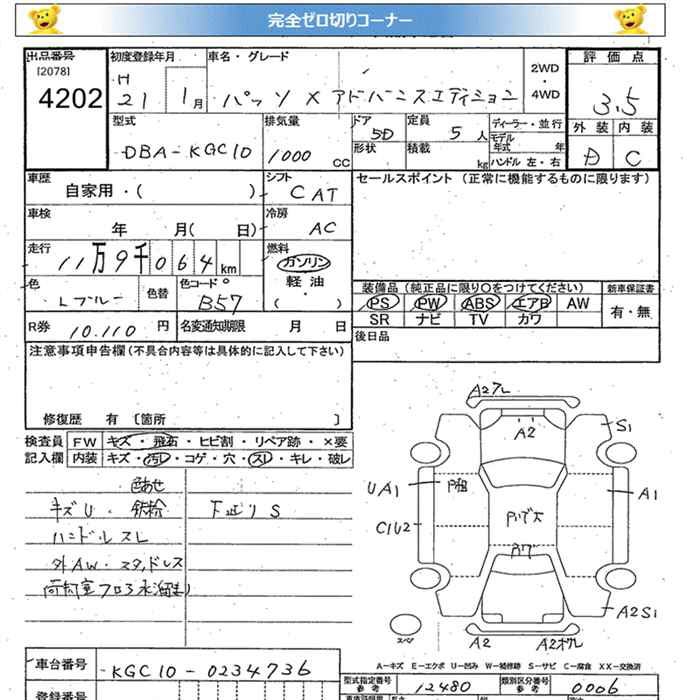 完全ゼロ切りコーナー
出品番号 初度登録年月 車名・グレード 評価点
[2078] H 2WD
4202 21 1月 パッソ X アドバンスエディション 4WD 3.5
型式 排気量 ドア 定員 ディーラー・並行 外装 内装
DBA-KGC10 1000 CC 5D 5人 モデル年式 年
形状 積載 kg ハンドル 左・右 D C
車歴 シフト セールスポイント (正常に機能するものに限ります)
自家用・( ) CAT
車検 冷房
年 月( 日) AC
走行 燃料
11万9千064km ガソリン
軽油
( )
色 色替 色コード 装備品 (純正品に限り○をつけてください) 新車保証書
Lブルー B57 PS PW ABS エアB AW 有・無
SR ナビ TV カワ
R券 10.110 円 名変通知期限 月 日 後日品
注意事項申告欄(不具合内容等は具体的に記入して下さい)
修復歴 有 〔箇所 〕
検査員 FW キズ・飛石・ヒビ割・リペア跡・×要
記入欄 内装 キズ・汚レ・コゲ・穴・スレ・キレ・破レ
色あせ
キズU・鉄粉 下廻りS
ハンドルスレ
外AW・スタッドレス
A2アレ
A2 S1
UA1 A1
C1U2
A2S1
スペア A2
A-キズ E-エクボ U-凹み W-補修跡 S-サビ C-腐食 XX-交換済
車台番号 KGC10-0234736
型式指定番号 参考 12480 類別区分番号 参考 0006
登録番号